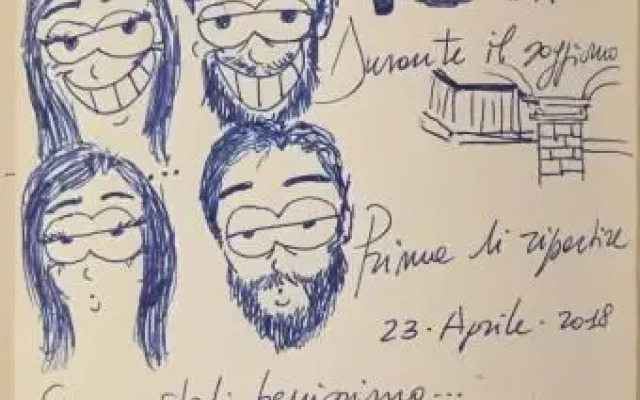 Durante il soggiorno
...
Prima di ripartire
23. Aprile. 2018
stati benissimo...